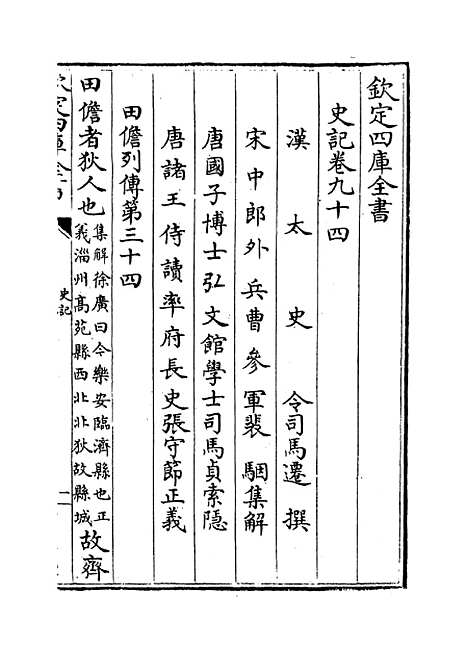 欽定四庫全書
史記卷九十四
漢太史令司馬遷撰
宋中郎外兵曹參軍裴駰集解
唐國子博士弘文館學士司馬貞索隱
唐諸王侍讀率府長史張守節正義
田儋列傳第三十四
田儋者狄人也集解徐廣曰今樂安臨濟縣也正
義淄州高苑縣西北北狄故縣城故齊
史記